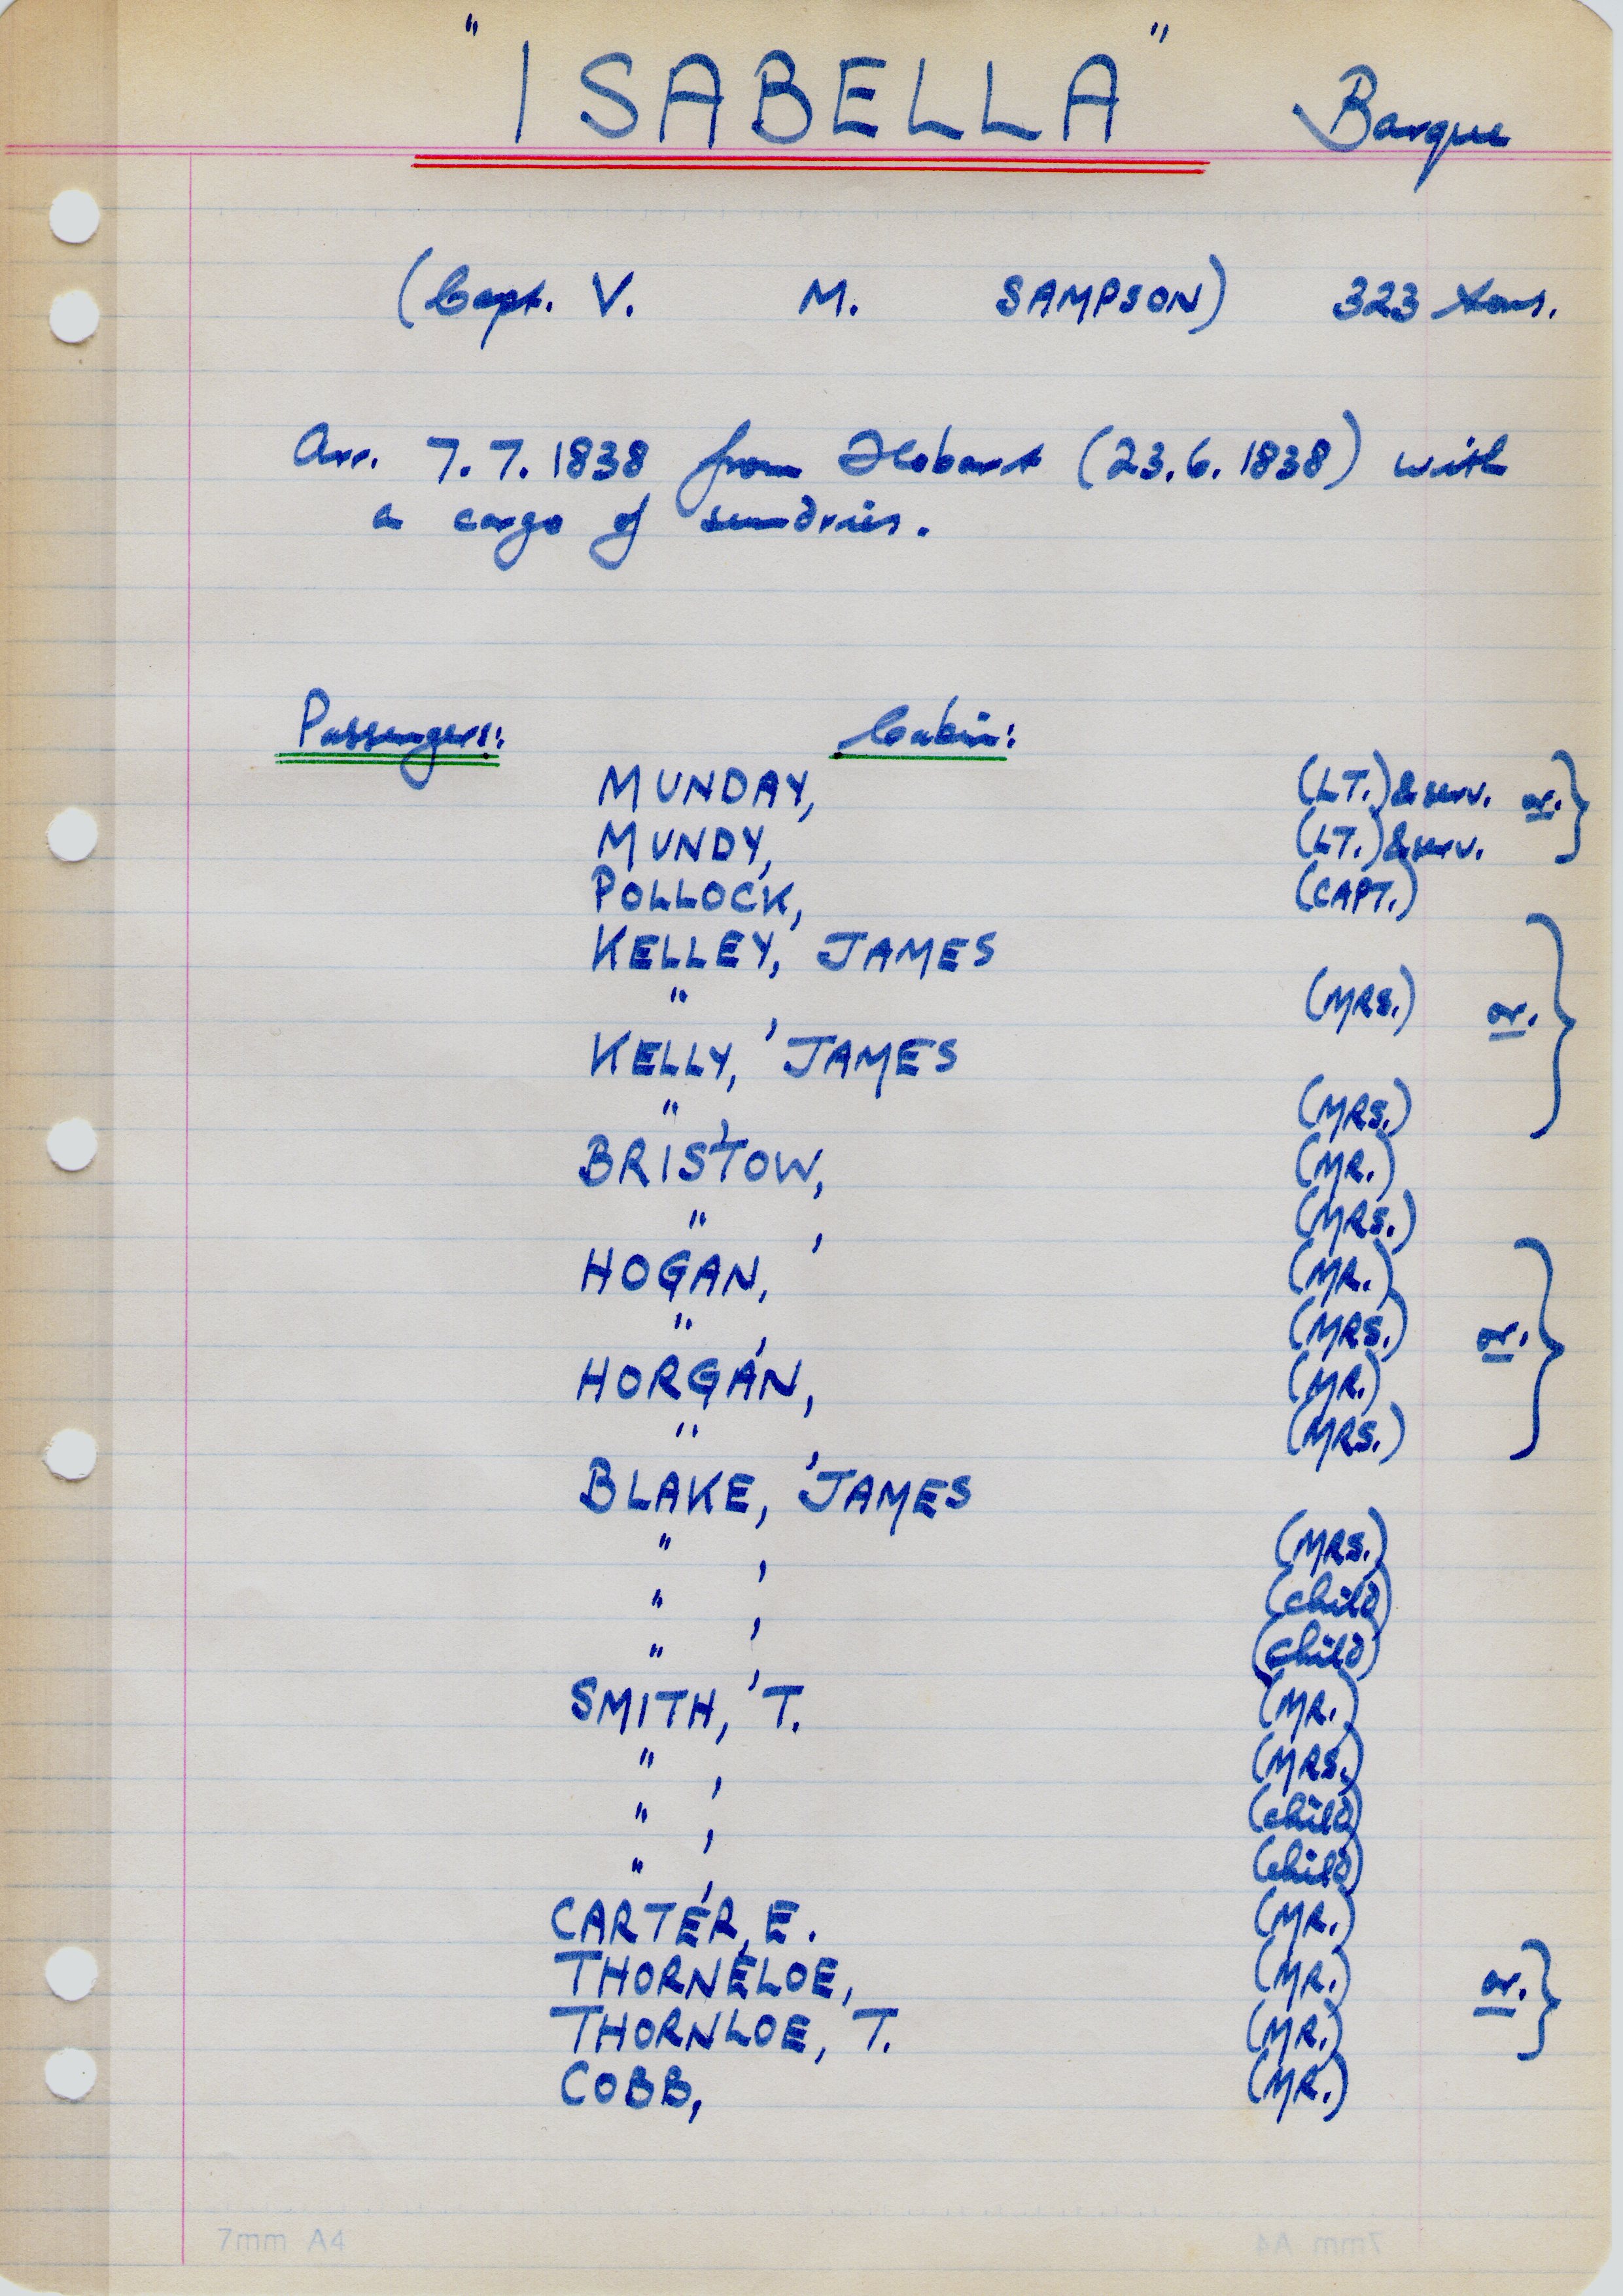 "ISABELLA" Barque
(Capt. V. M. SAMPSON) 323 tons.
Arr. 7.7.1838 from Hobart (23.6.1838) with
a cargo of sundries.
Passengers: Cabin:
MUNDAY, (LT.) & serv. or. }
MUNDY, (LT.) & serv.
POLLOCK, (CAPT.)
KELLEY, JAMES
" , (MRS.) or. }
KELLY, JAMES
" , (MRS.)
BRISTOW, (MR.)
" , (MRS.)
HOGAN, (MR.)
" , (MRS.) or. }
HORGAN, (MR.)
" , (MRS.)
BLAKE, JAMES
" , (MRS.)
" , (child)
" , (child)
SMITH, T. (MR.)
" , (MRS.)
" , (child)
" , (child)
CARTER, E. (MR.)
THORNELOE, (MR.) or. }
THORNLOE, T. (MR.)
COBB, (MR.)
7mm A4